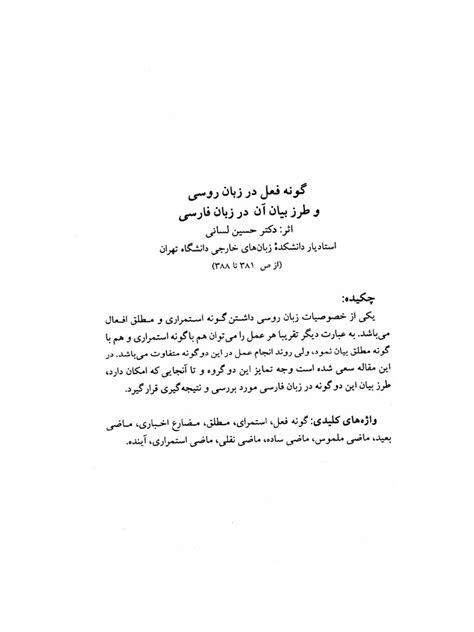 گونه فعل در زبان روسی
و طرز بیان آن در زبان فارسی
اثر: دکتر حسین لسانی
استادیار دانشکدهٔ زبان‌های خارجی دانشگاه تهران
(از ص ۳۸۱ تا ۳۸۸)
چکیده:
یکی از خصوصیات زبان روسی داشتن گونه استمراری و مطلق افعال
می‌باشد. به عبارت دیگر تقریبا هر عمل را می‌توان هم با گونه استمراری و هم با
گونه مطلق بیان نمود، ولی روند انجام عمل در این دو گونه متفاوت می‌باشد. در
این مقاله سعی شده است وجه تمایز این دو گروه و تا آنجایی که امکان دارد،
طرز بیان این دو گونه در زبان فارسی مورد بررسی و نتیجه‌گیری قرار گیرد.
واژه‌های کلیدی: گونه فعل، استمرای، مطلق، مضارع اخباری، ماضی
بعید، ماضی ملموس، ماضی ساده، ماضی نقلی، ماضی استمراری، آینده.